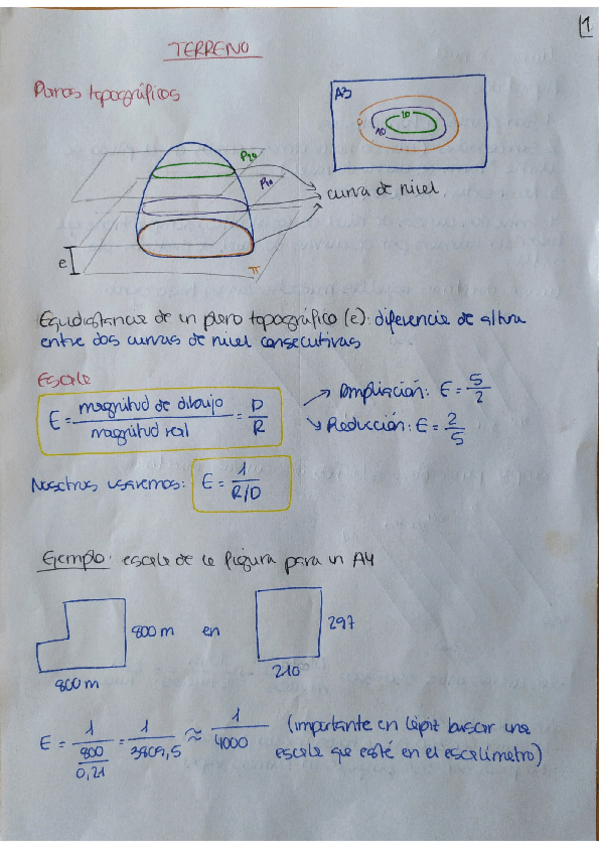 1
TERRENO
Planos topográficos
A3
0
10
20
P20
P10
curva de nivel
e
π
Equidistancia de un plano topográfico (e): diferencia de altura
entre dos curvas de nivel consecutivas
Escala
E = magnitud de dibujo / magnitud real = D / R
→ Ampliación: E = 5/2
↘ Reducción: E = 2/5
Nosotros usaremos: E = 1 / R/D
Ejemplo: escala de la figura para un A4
800 m en 297
800 m 210
E = 1 / (800 / 0,21) = 1 / 3809,5 ≈ 1 / 4000 (importante en lápiz buscar una
escala que esté en el escalímetro)